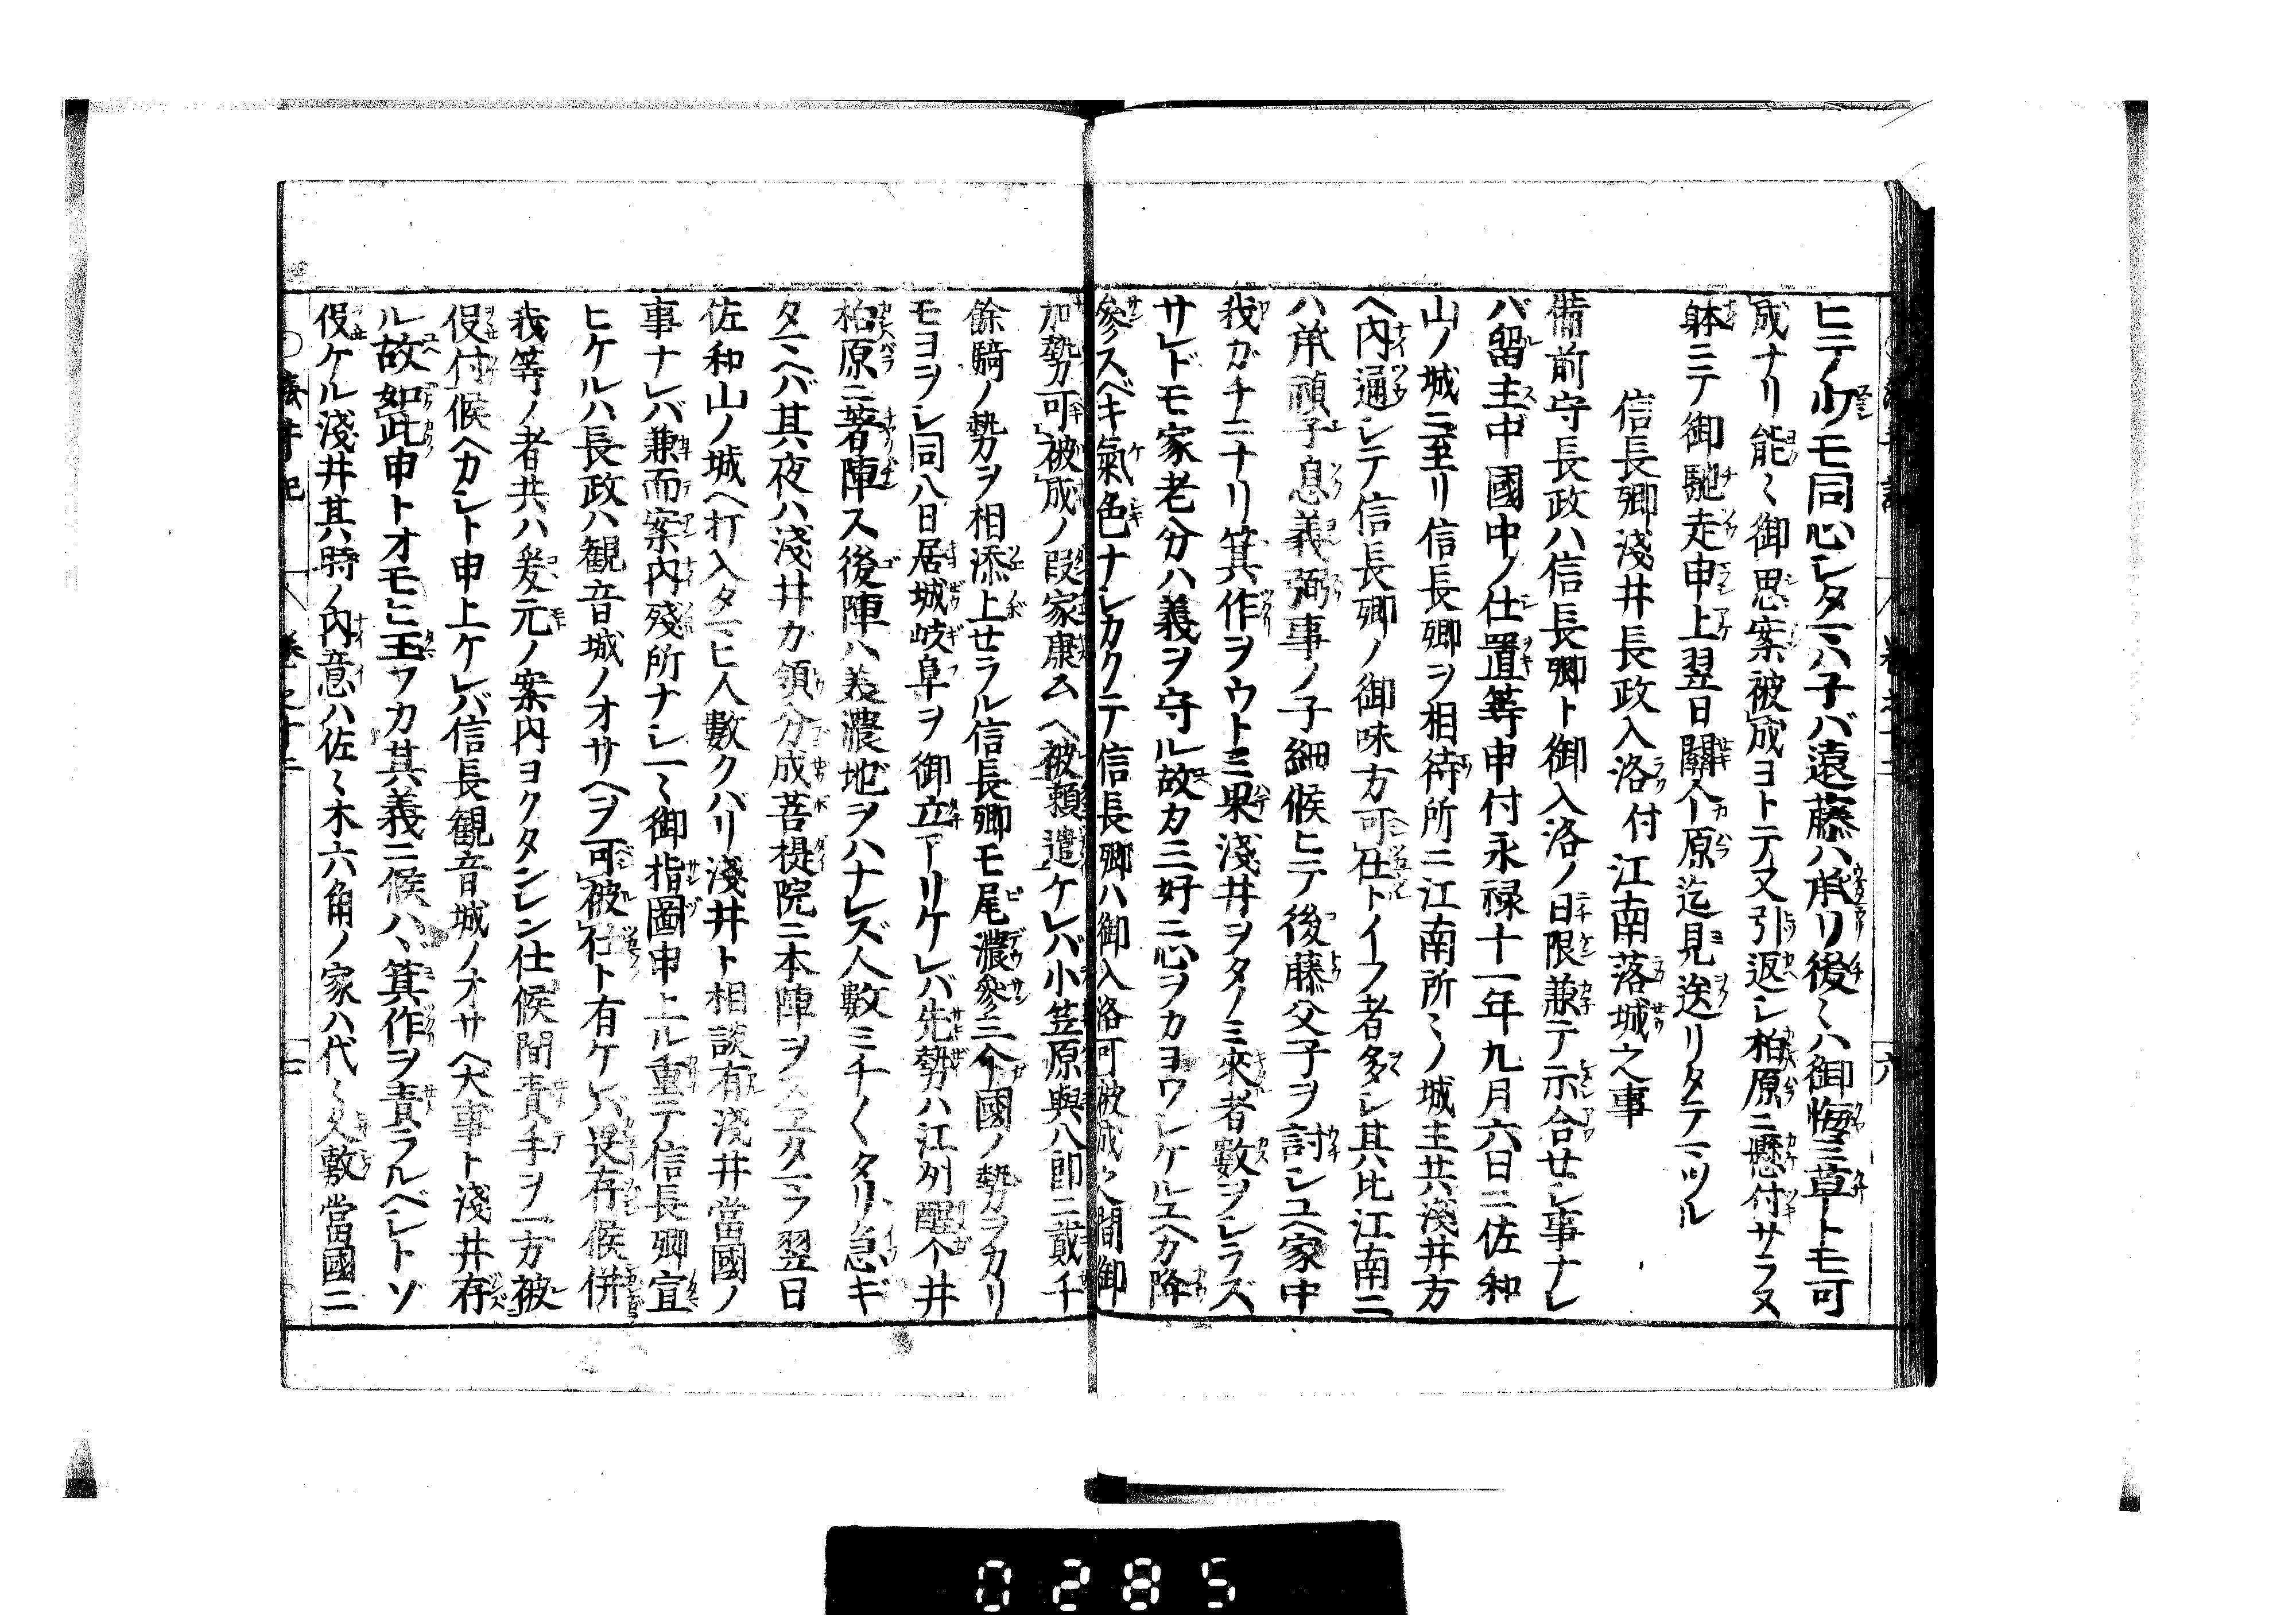 ヒテ少モ同心シタマハ子バ遠藤ハ承リ後〻ハ御悔ミ草トモ可
成ナリ能〻御思案被成ヨトテ又引返シ柏原ニ懸付サラヌ
躰ニテ御馳走申上翌日關ケ原迄見送リタテマツル
信長卿淺井長政入洛付江南落城之事
備前守長政ハ信長卿ト御入洛ノ日限兼テ示合セシ事ナレ
バ留主中國中ノ仕置等申付永禄十一年九月六日ニ佐和
山ノ城ニ至リ信長卿ヲ相待所ニ江南所〻ノ城主共淺井方
ヘ内通シテ信長卿ノ御味方可仕トイフ者多シ其比江南ニ
ハ承禎子息義弼事ノ子細候ヒテ後藤父子ヲ討シユヘ家中
我ガチニナリ箕作ヲウトミ果淺井ヲタノミ來者數ヲシラズ
サレドモ家老分ハ義ヲ守ル故カ三好ニ心ヲカヨワシケルユヘカ降
參スベキ氣色ナシカクテ信長卿ハ御入洛可被成之間御
加勢可被成ノ段家康公ヘ被頼遣ケレバ小笠原與八郎ニ貳千
餘騎ノ勢ヲ相添上セラル信長卿モ尾濃參三ケ國ノ勢ヲカリ
モヨヲシ同八日居城岐阜ヲ御立アリケレバ先勢ハ江州醒个井
柏原ニ著陣ス後陣ハ美濃地ヲハナレズ人數ミチ〳〵タリ急ギ
タマヘバ其夜ハ淺井ガ領分成菩提院ニ本陣ヲスヱタマフ翌日
佐和山ノ城ヘ打入タマヒ人數クバリ淺井ト相談有淺井當國ノ
事ナレバ兼而案内殘所ナシ一〻御指圖申上ル重テ信長卿宣
ヒケルハ長政ハ観音城ノオサヘヲ可被仕ト有ケレバ畏存候併
我等ノ者共ハ爰元ノ案内ヨクタンレン仕候間責手ヲ一方被
仰付候ヘカシト申上ケレバ信長観音城ノオサヘ大事ト淺井存
ル故如此申トオモヒ玉フカ其義ニ候ハヾ箕作ヲ責ラルベシトゾ
仰ケル淺井其時ノ内意ハ佐〻木六角ノ家ハ代〻久敷當國ニ